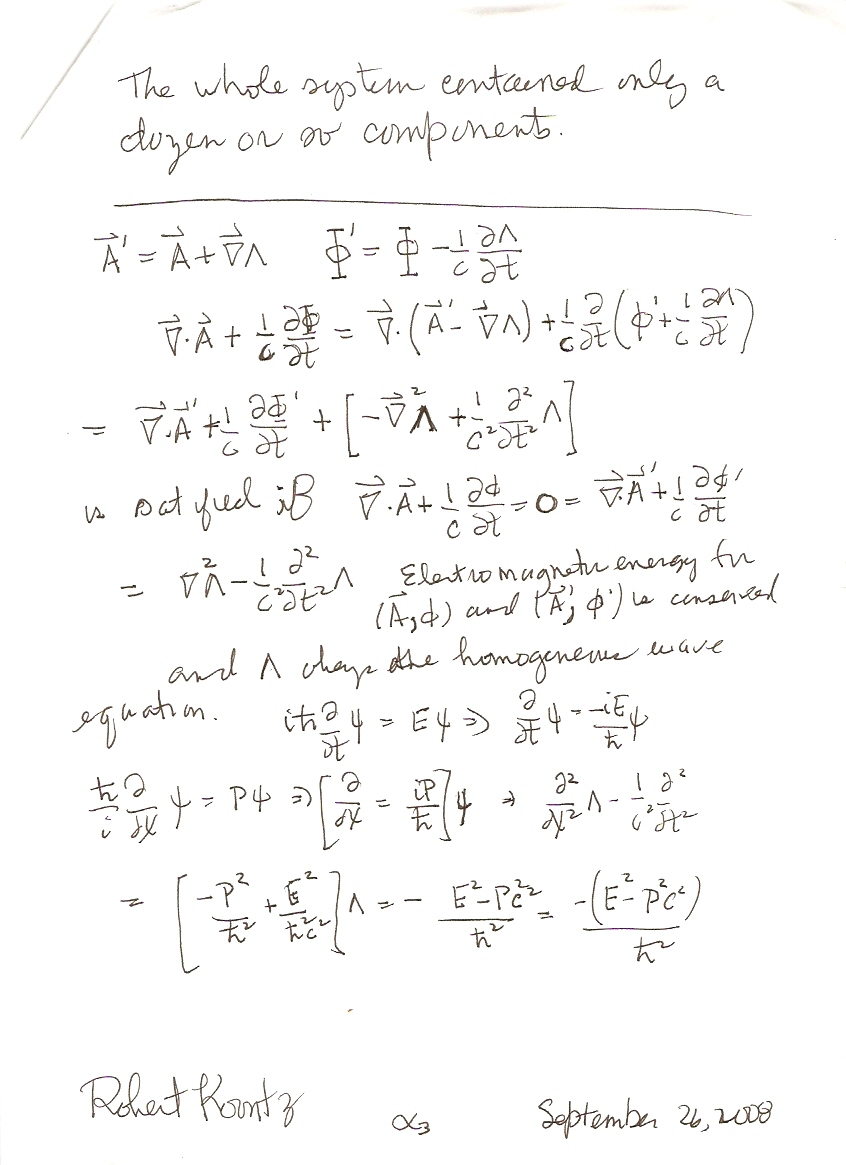 The whole system contained only a
dozen or so components.
A⃗' = A⃗ + ∇⃗Λ   Φ' = Φ - 1/c ∂Λ/∂t
∇⃗·A⃗ + 1/c ∂Φ/∂t = ∇⃗·(A⃗' - ∇⃗Λ) + 1/c ∂/∂t (ϕ' + 1/c ∂Λ/∂t)
= ∇⃗·A⃗' + 1/c ∂Φ'/∂t + [-∇⃗²Λ + 1/c² ∂²/∂t² Λ]
is satisfied if ∇⃗·A⃗ + 1/c ∂ϕ/∂t = 0 = ∇⃗·A⃗' + 1/c ∂ϕ'/∂t
= ∇²Λ - 1/c² ∂²/∂t² Λ   Electromagnetic energy for
(A⃗, ϕ) and (A⃗', ϕ') is conserved
and Λ obeys the homogeneous wave
equation.   iħ ∂/∂t ψ = Eψ ⇒ ∂/∂t ψ = -iE/ħ ψ
ħ/i ∂/∂x ψ = Pψ ⇒ [∂/∂x = iP/ħ] ψ ⇒ ∂²/∂x² Λ - 1/c² ∂²/∂t²
= [-P²/ħ² + E²/ħ²c²] Λ = - E²-P²c²/ħ² = -(E²-P²c²)/ħ²
Robert Koontz   α₃   September 26, 2008